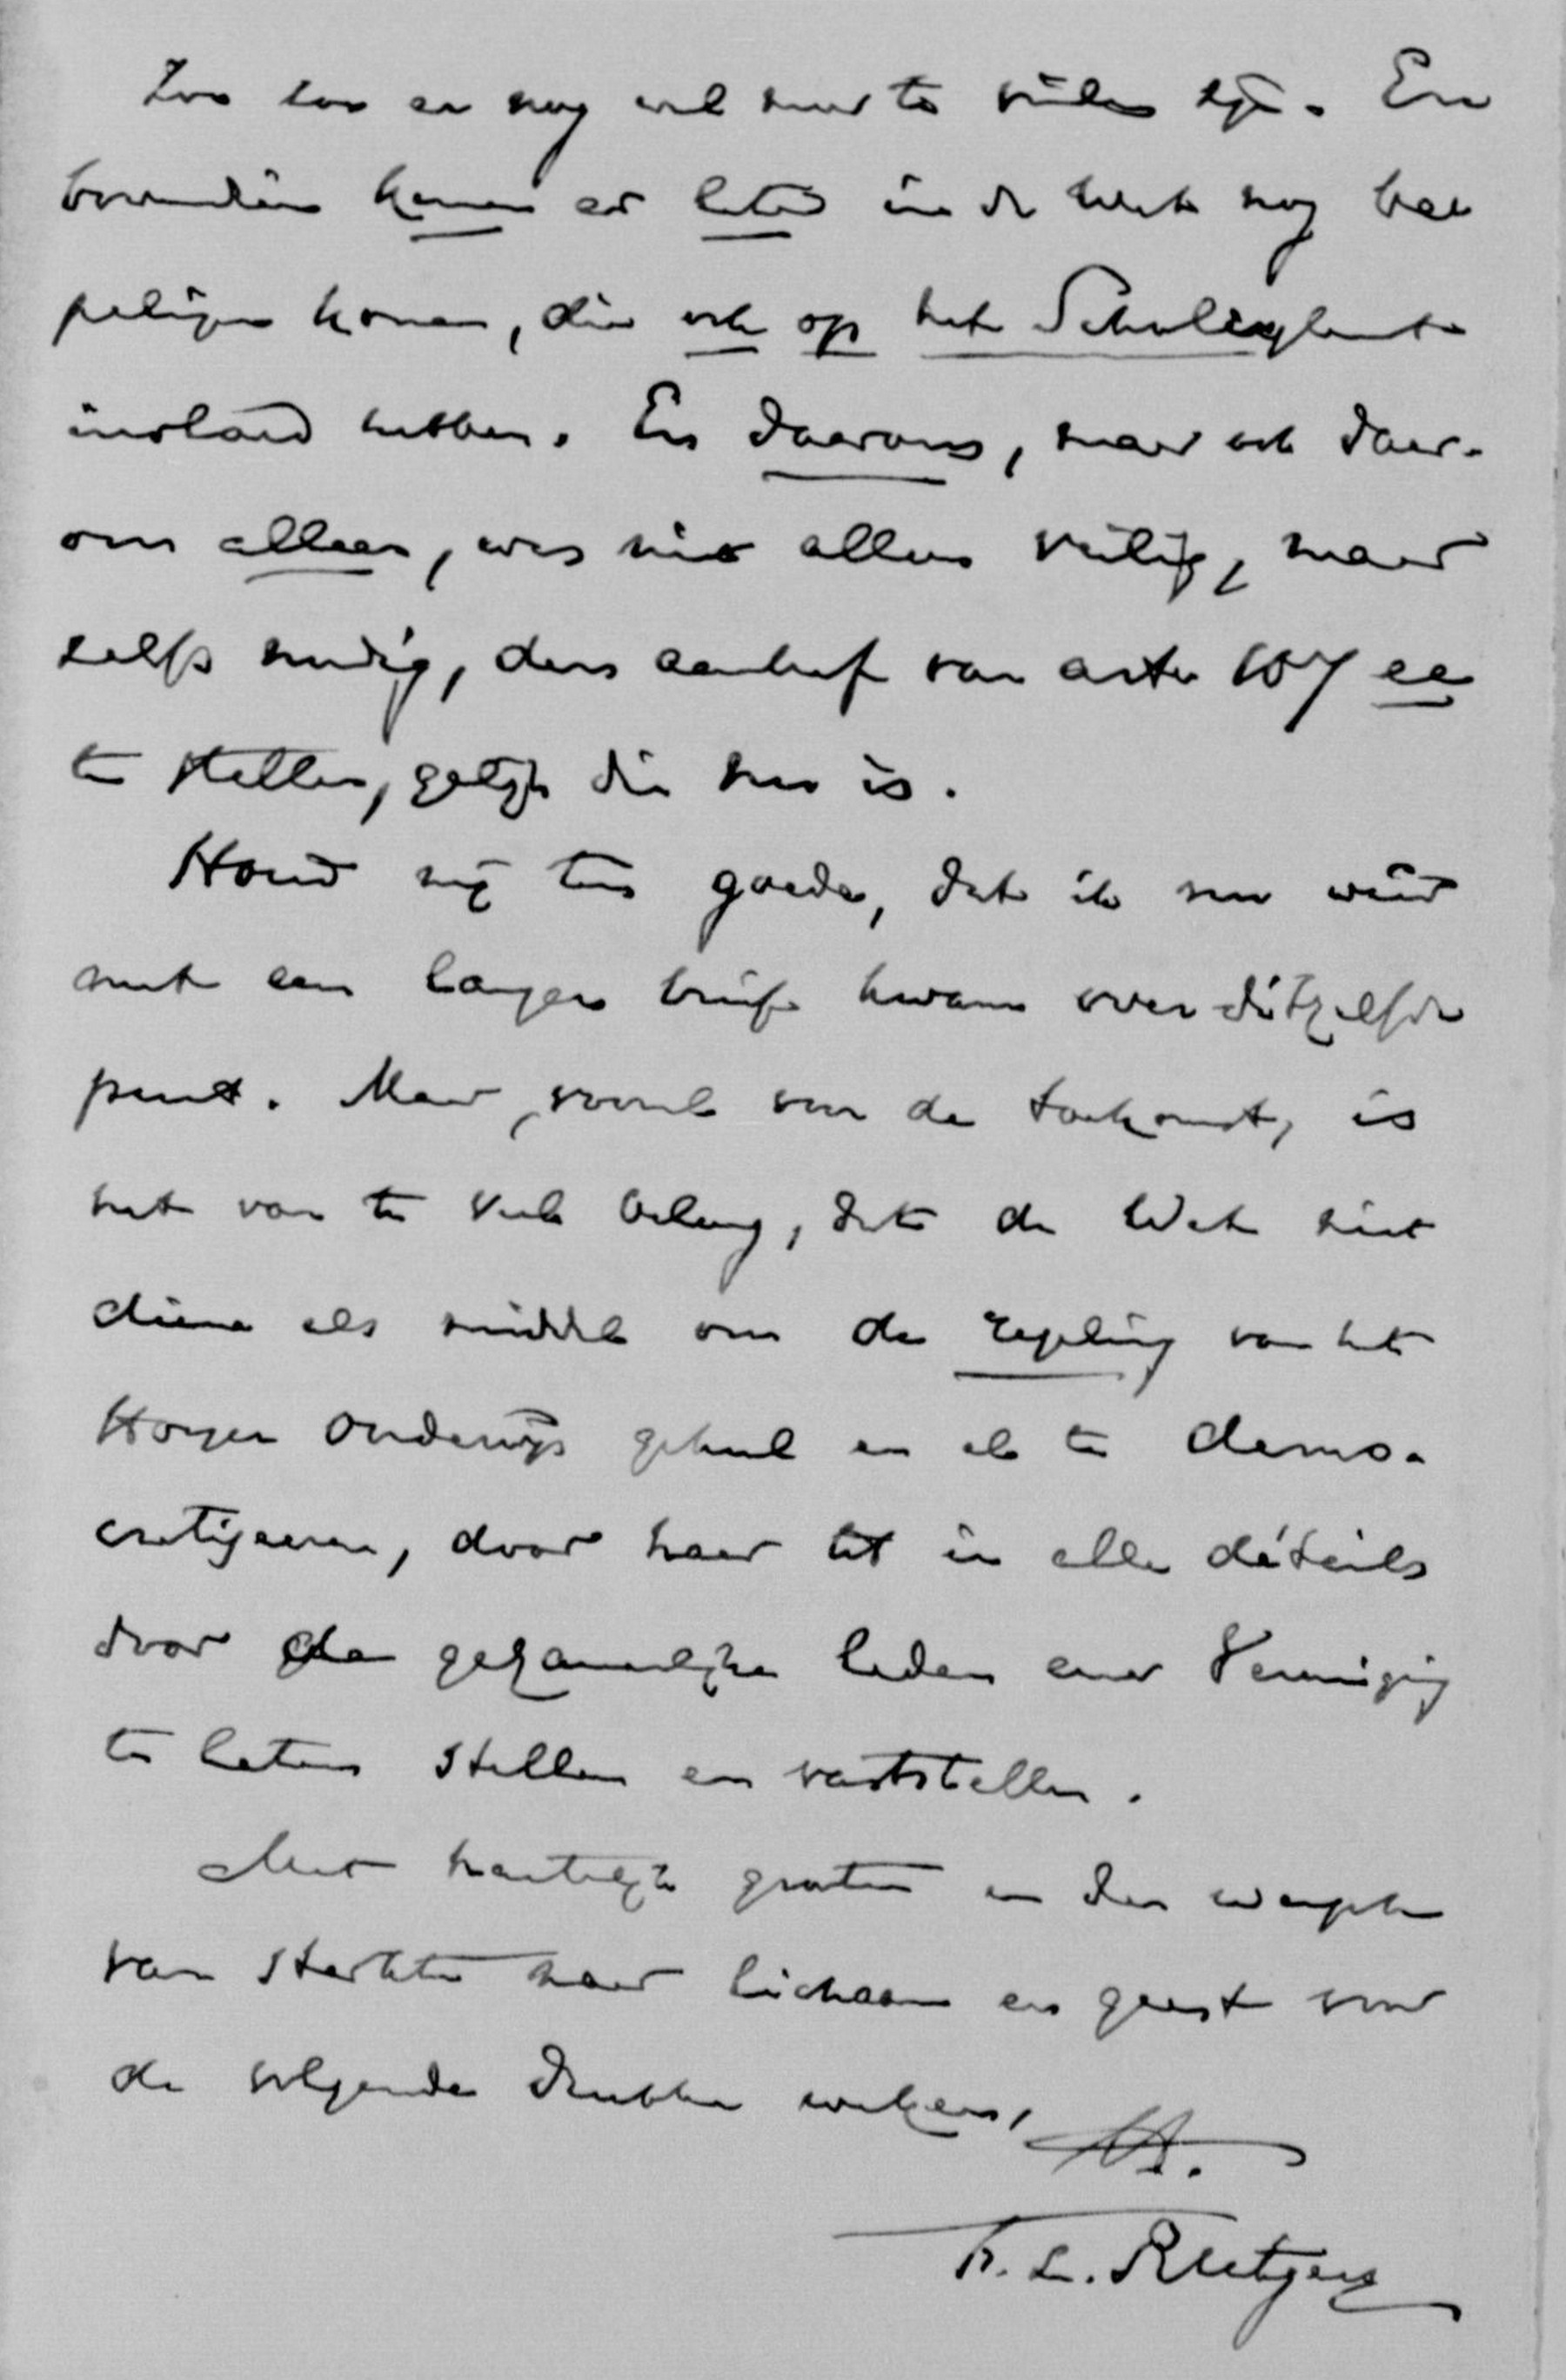 Zoo zou er nog wel meer te vinden zijn. En
bovendien kunnen er later in de Wet nog be-
palingen komen, die ook op het Schoolreglement
invloed hebben. En daarom, maar ook daar-
om alleen, was niet alleen veilig, maar
zelfs noodig, den aanhef van art. 107 
te stellen, gelijk die nu is.
Houd mij ten goede, dat ik nu weer
met een langen brief kwam over ditzelfde
punt. Maar, vooral voor de toekomst, is
het van te veel belang, dat de Wet niet
diene als middel om de regeling van het
Hooger Onderwijs geheel en al te demo-
cratiseeren, door haar tot in alle détails
door de gezamenlijke leden eener Vereeniging
te laten stellen en vaststellen.
Met hartelijke groeten en den wensch
van sterkte naar lichaam en geest voor
de volgende drukke weken,
tt.
F. L. Rutgers